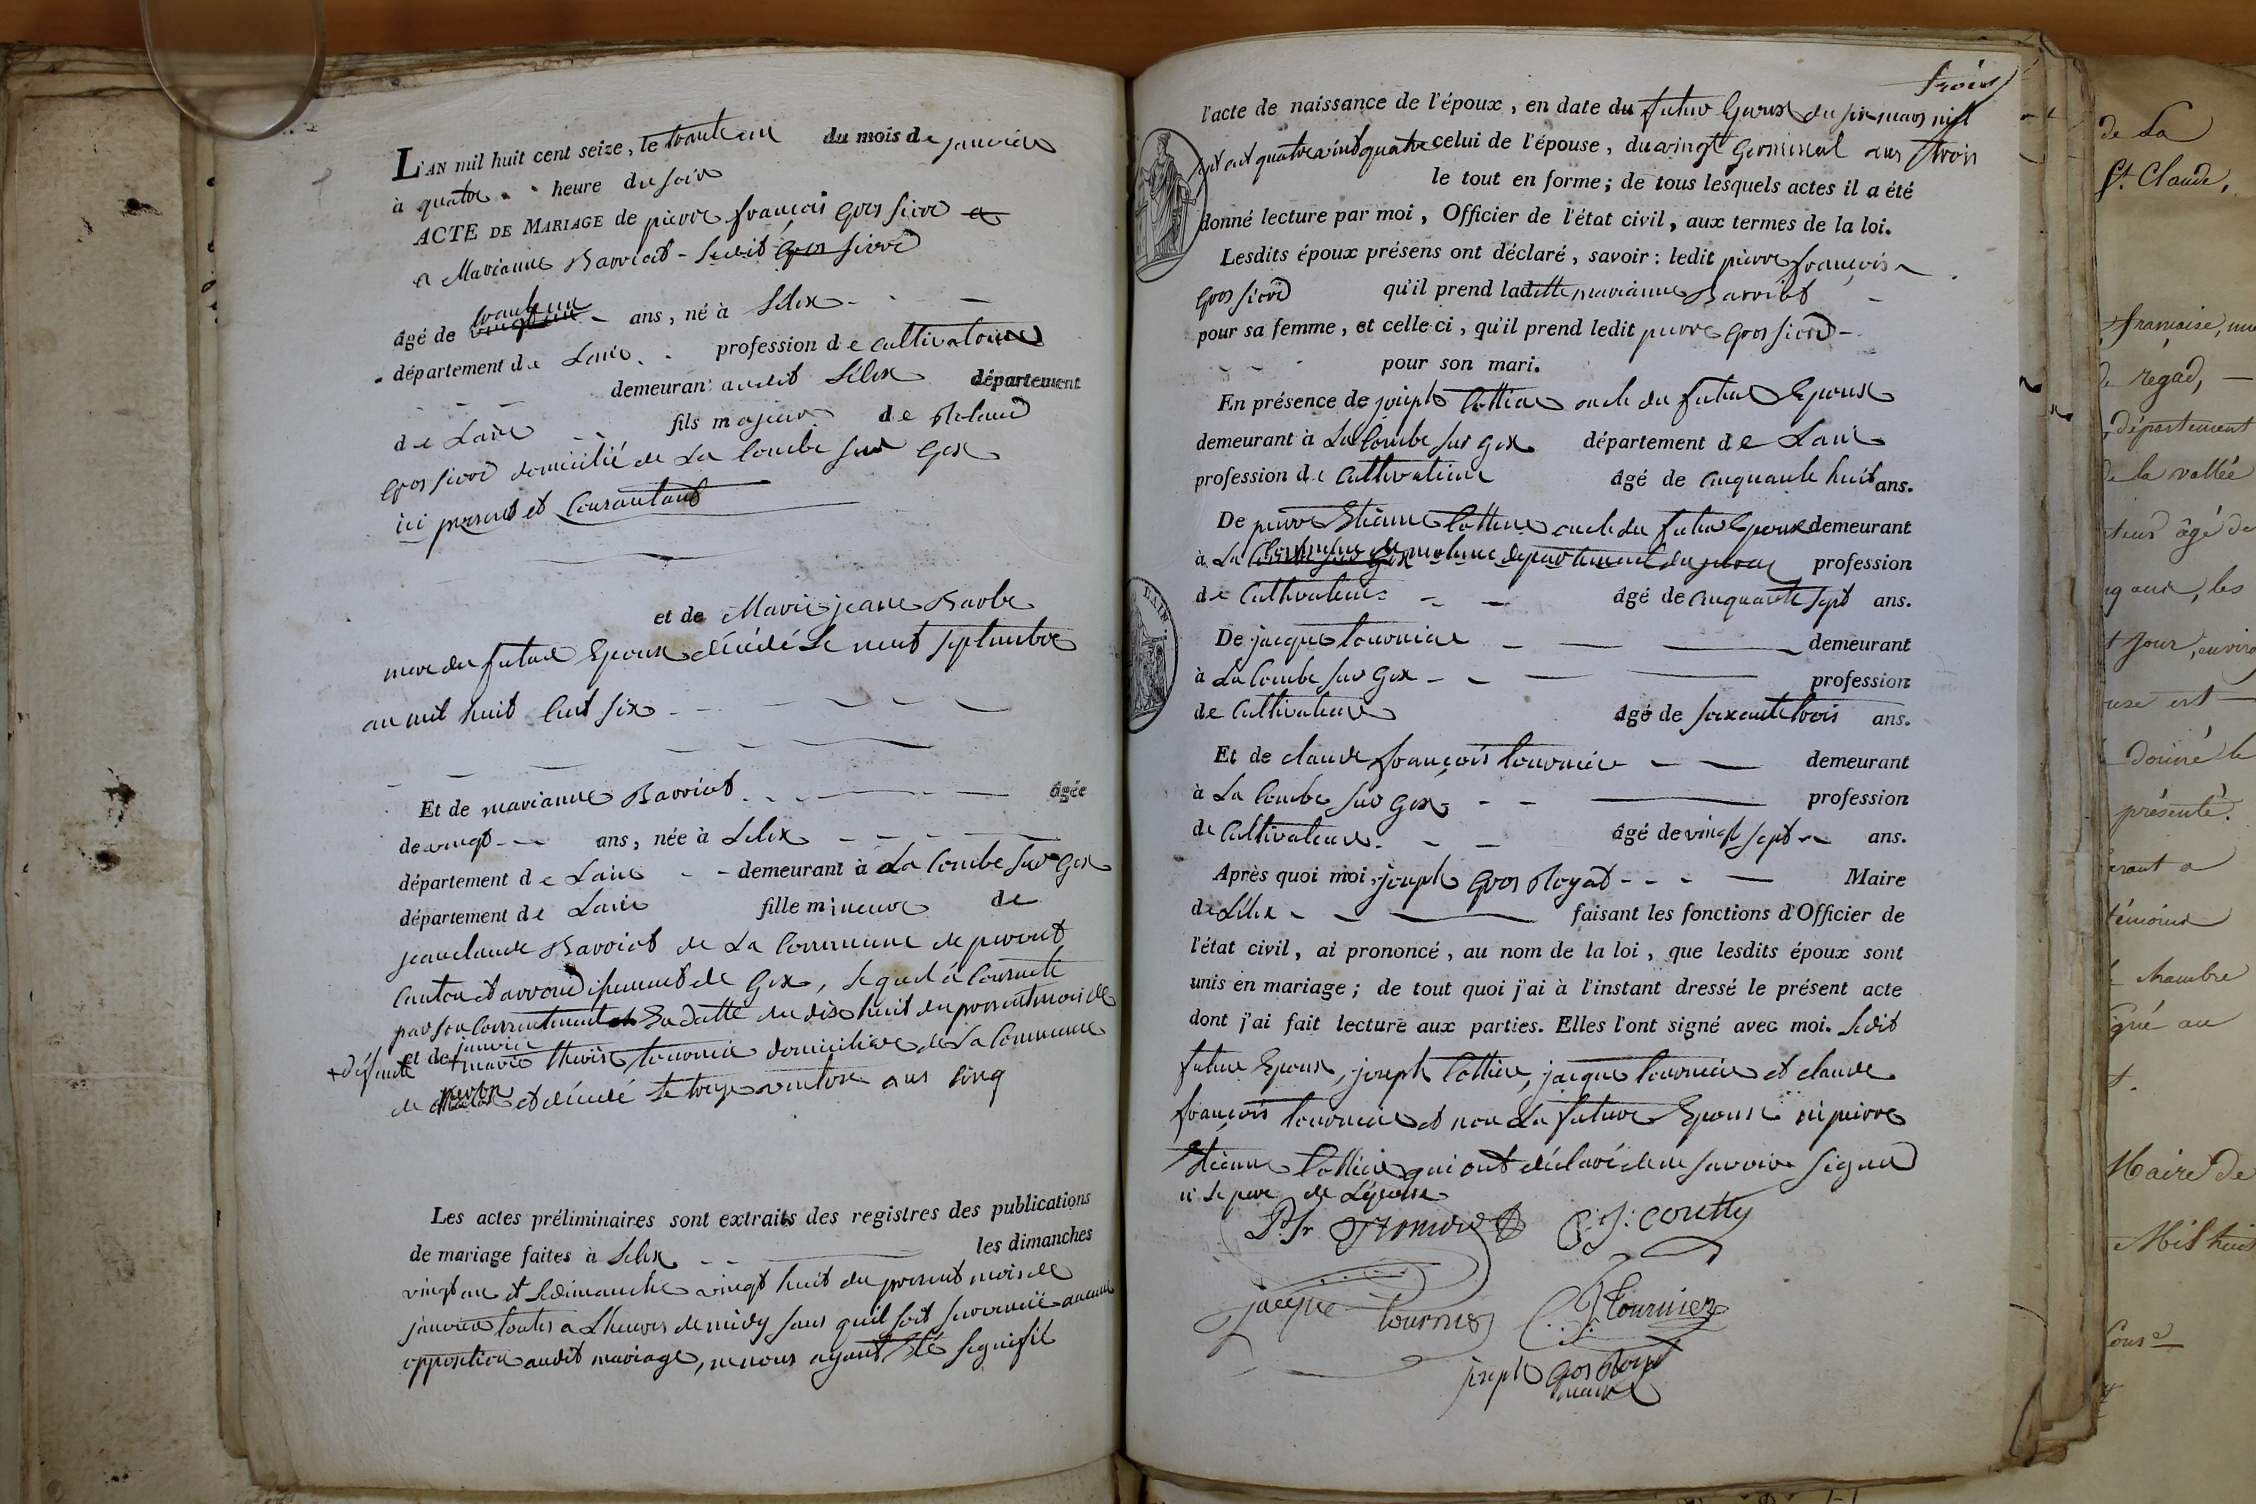 L'AN mil huit cent seize, le trante un du mois de janvier
à quatre heure du soir
ACTE DE MARIAGE de pierre françois Gros fierre et
a Marianne Barriot - Ledit Gros fierre
trante un
âgé de vingt un ans, né à Lelex
département de Lain profession de cultivateur
demeurant audit Lélex département
de Lain fils majeur de Roland
Gros fierre domicilié de La Combe sur Gex
ici present et Consantant
et de Marie jeane Barbe
mere du futur Epoux décédé Le neuf septembre
an mil huit Cent six
Et de marianne Barriot âgée
de vingt ans, née à Lelex
département de Lain demeurant à La Combe sur Gex
département de Lain fille mineure de
jean claude Barriot de La Commune de
Canton et arrondissement de Gex, Lequel à Consenté
par son Consentement En datte du dix huit du present mois de
janvier
+ défunte et de marie tournier domiciliée de La Commune
de et décédé Le treize ventose ans Cinq
Les actes préliminaires sont extraits des registres des publications
de mariage faites à Lelex les dimanches
vingt un et Ledimanche vingt huit du present mois de
janvier toutes a L'heure de midy sans quil soit survenue aucune
opposition audit mariage, ne nous ayant Eté signifié
trois
l'acte de naissance de l'époux, en date du futur Epoux du six mars mil
sept cent quatre vint quatre celui de l'épouse, du vingt Germinal ans trois
le tout en forme; de tous lesquels actes il a été
donné lecture par moi, Officier de l'état civil, aux termes de la loi.
Lesdits époux présens ont déclaré, savoir: ledit pierre françois
Gros fierre qu'il prend ladette marianne Barriot
pour sa femme, et celle-ci, qu'il prend ledit pierre Gros fierre
pour son mari.
En présence de joseph Cottier oncle du futur Epoux
demeurant à La Combe sur Gex département de Lain
profession de Cultivateur âgé de cinquante huit ans.
De pierre Etienne Cottier oncle du futur Epoux demeurant
à La Commune de molune département du jura profession
de Cultivateur âgé de cinquante sept ans.
De jacque tournier demeurant
à La Combe sur Gex profession
de Cultivateur âgé de soixante trois ans.
Et de claude françois tournier demeurant
à La Combe sur Gex profession
de Cultivateur âgé de vingt sept ans.
Après quoi moi, joseph Gros Royat Maire
de Lélex faisant les fonctions d'Officier de
l'état civil, ai prononcé, au nom de la loi, que lesdits époux sont
unis en mariage; de tout quoi j'ai à l'instant dressé le présent acte
dont j'ai fait lecture aux parties. Elles l'ont signé avec moi. Ledit
futur Epoux, joseph Cottier, jacque tournier et claude
françois tournier et non La future Epouse ni pierre
Etienne Cottier qui ont déclaré de ne savoir signer
ni Le pere de L'épouse
jacque tournier C. f. tournier
joseph Gros Royat
maire
de La
St. Claude,
française, une
de regad,
département
de la vallée
âgé de
les
t jour, environ
use est
donné le
présenté.
témoins
chambre
signé au
Maire de
Mil huit